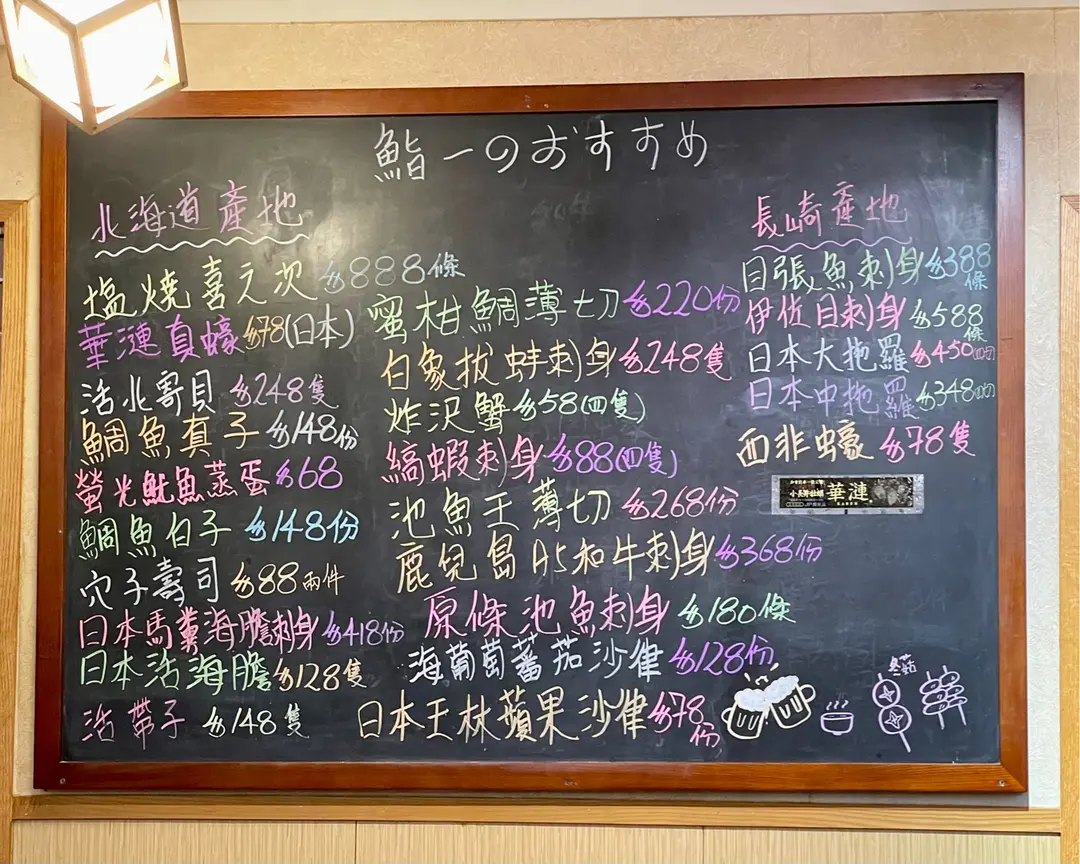 鮨一のおすすめ
北海道產地
塩燒喜之次 $888條
華漣真蠔 $78(日本)
活北寄貝 $248隻
鯛魚真子 $148份
螢光魷魚蒸蛋 $68
鯛魚白子 $148份
穴子壽司 $88兩件
日本馬糞海膽刺身 $418份
日本活海膽 $128隻
活帶子 $148隻
蜜柑鯛薄切 $220份
白象拔蚌刺身 $248隻
炸沢蟹 $58(四隻)
縞蝦刺身 $88(四隻)
池魚王薄切 $268份
鹿兒島A5和牛刺身 $368份
原條池魚刺身 $180條
海葡萄蕃茄沙律 $128份
日本王林蘋果沙律 $78份
長崎產地
目張魚刺身 $388條
伊佐目刺身 $588條
日本大拖羅 $450
日本中拖羅 $348
西非蠔 $78隻
小長井牡蠣 華漣
冬菇